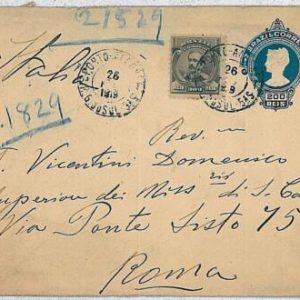 21529
Italia
1829
PORTO ALEGRE
26
1919
BRAZIL CORREIO
200
REIS
Rev.
T. Vicentini Domenico
Superior dei Miss.ris di S. Ca
Via Ponte Sisto 75
Roma